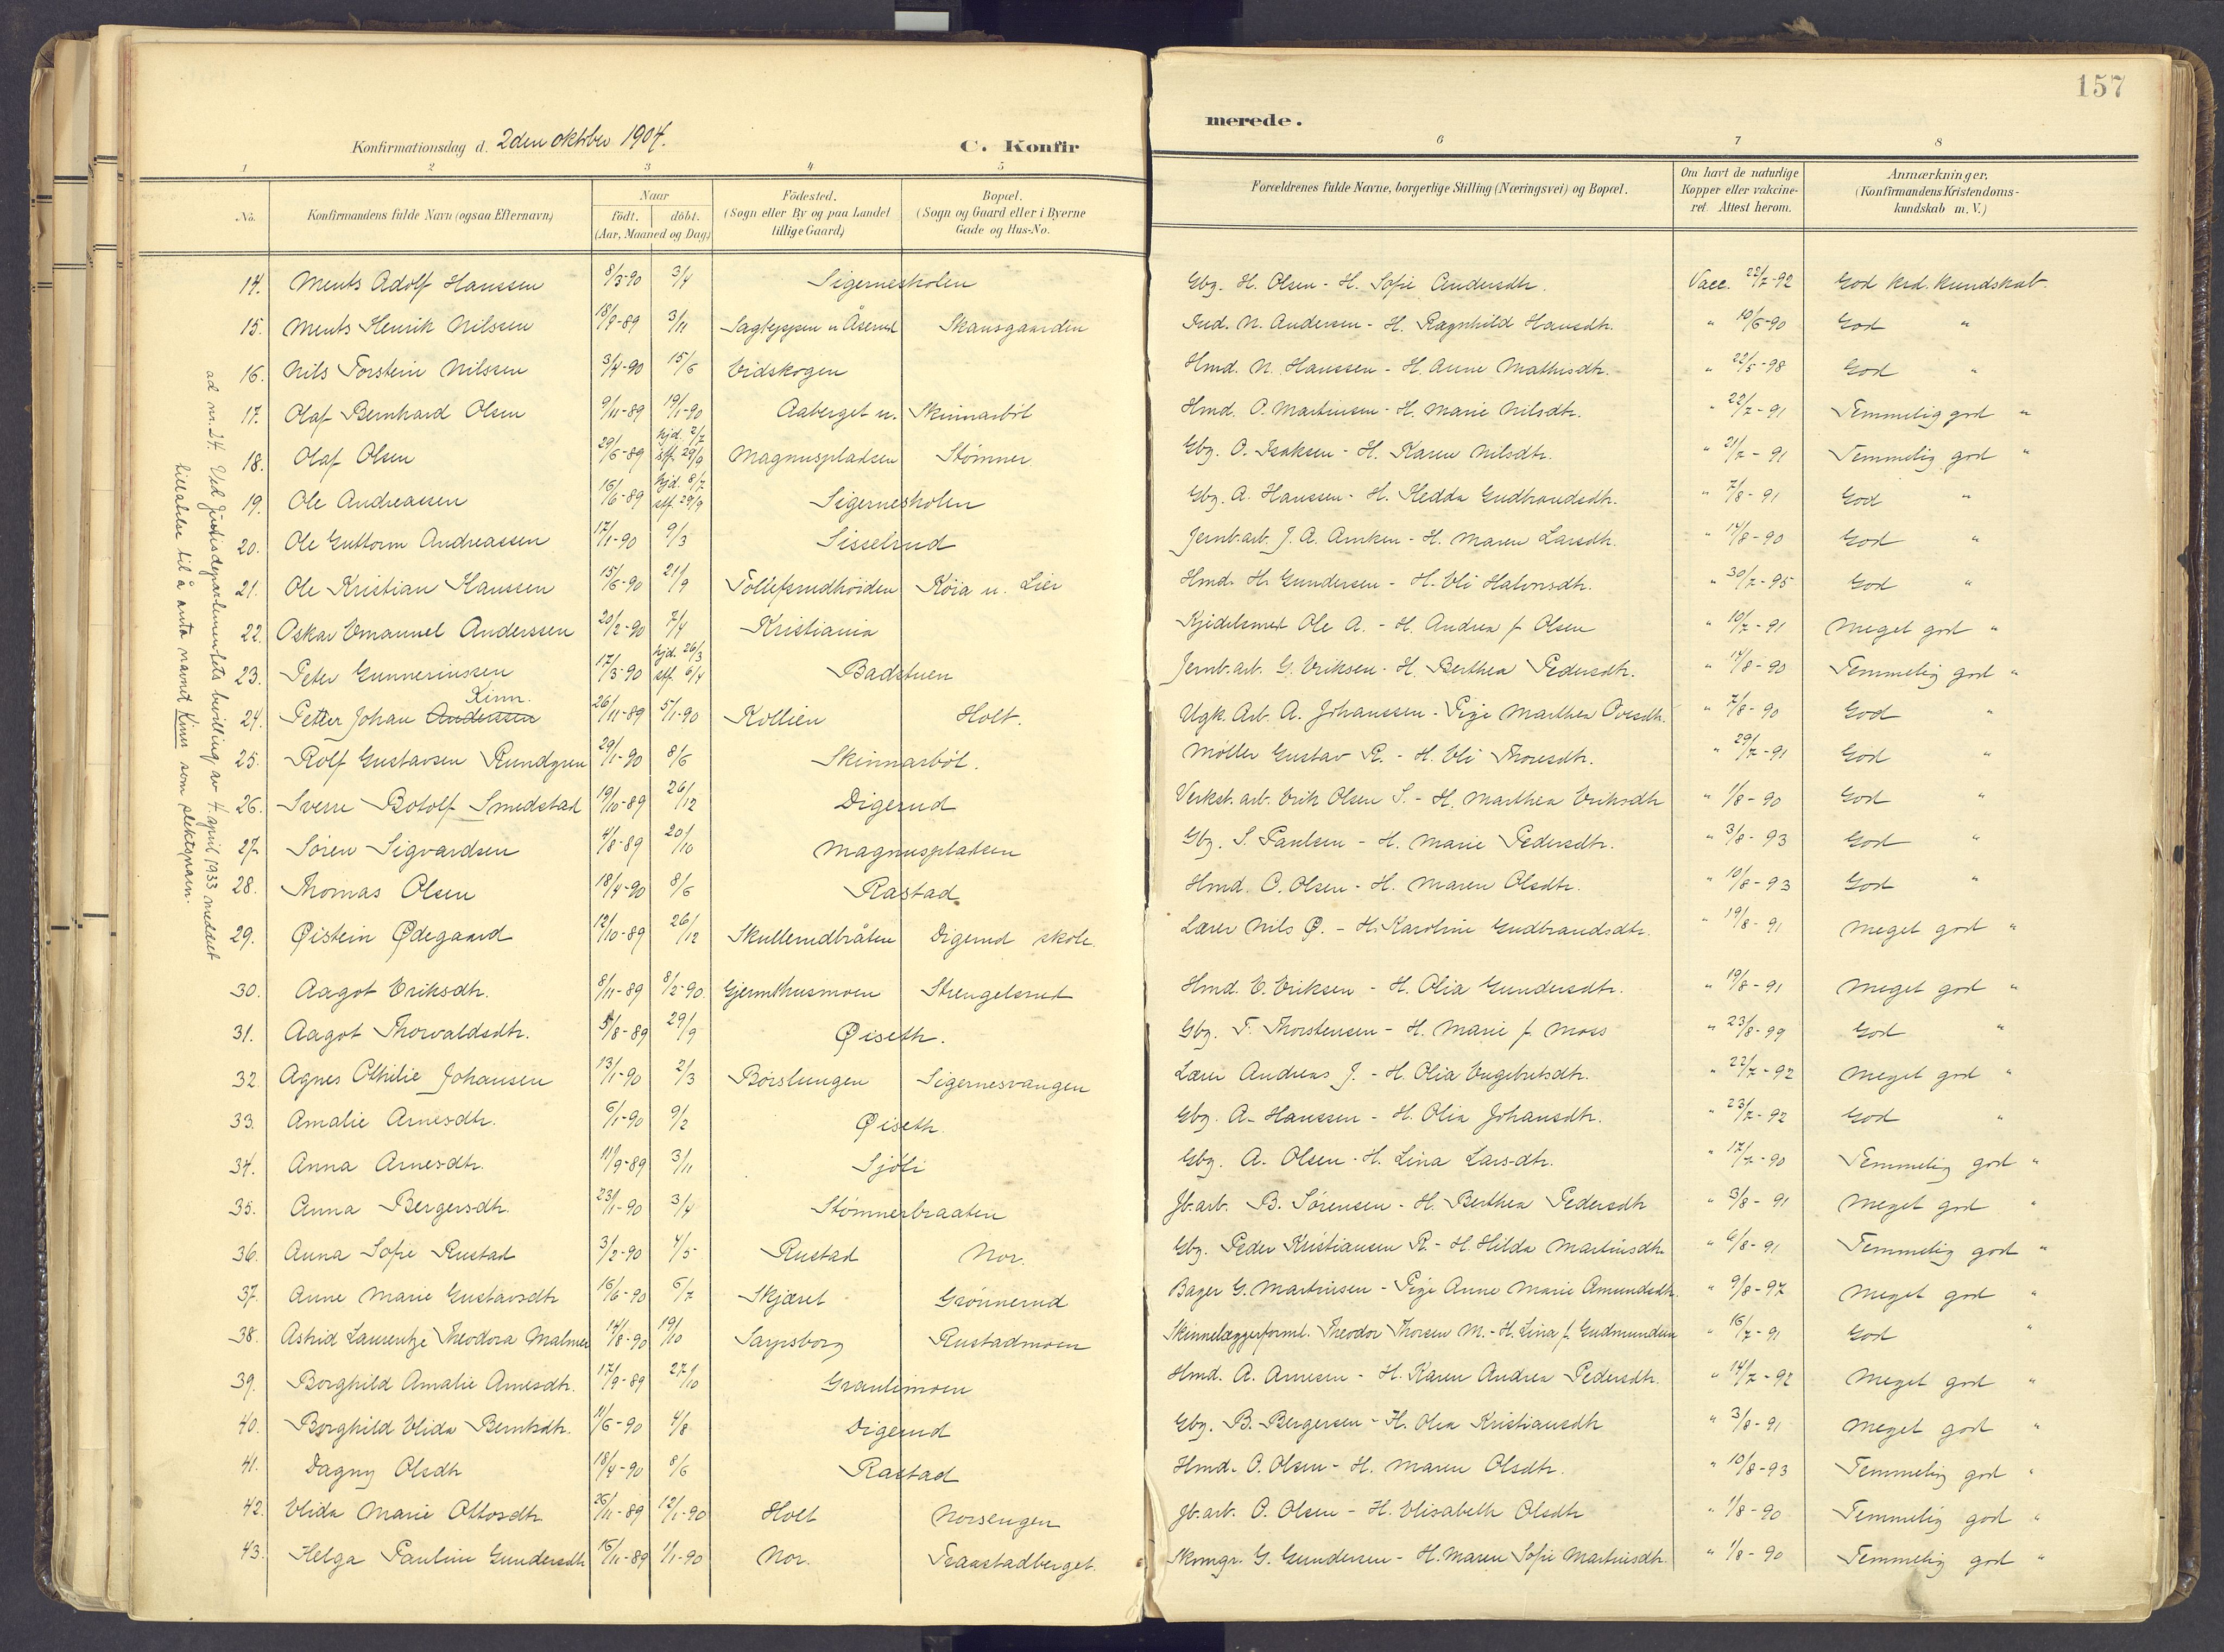 157
Konfirmationsdag d. 2den oktober 1904.
C. Konfirmerede.
1 2 3 4 5 6 7 8
No.
Konfirmandens fulde Navn (ogsaa Efternavn)
Naar
født. døbt.
(Aar, Maaned og Dag)
Födested.
(Sogn eller By og paa Landet
tillige Gaard)
Bopæl.
(Sogn og Gaard eller i Byerne
Gade og Hus-No.
Forældrenes fulde Navne, borgerlige Stilling (Næringsvei) og Bopæl.
Om havt de naturlige
Kopper eller vakcine-
ret. Attest herom.
Anmærkninger.
(Konfirmandens Kristendoms-
kundskab m. V.)
14. Ments Adolf Hanssen 8/3-90 3/4 Sigernesholen Gbg. H. Olsen - H. Sofie Andersdtr. Vacc. 22/7-92 God krd. kundskab.
15. Ments Henrik Nilssen 18/9-89 3/11 Sagteppen u. Åserud Skansgaarden Ind. N. Andersen - H. Ragnhild Hansdtr. " 10/6-90 God "
16. Nils Torstein Nilssen 3/4-90 15/6 Eidskogen Hmd. N. Hanssen - H. Anne Mathisdtr. " 22/5-98 God "
17. Olaf Bernhard Olsen 9/11-89 19/1-90 Aaberget u. Skinnarböl Hmd. O. Martinsen - H. Marie Nilsdtr. " 22/7-91 Temmelig god "
18. Olaf Olsen 29/6-89 hjd. 2/7 stf. 29/9 Magnuspladsen Stömner Gbg. O. Isaksen - H. Karen Nilsdtr. " 21/7-91 Temmelig god "
19. Ole Andreassen 16/6-89 hjd. 8/7 stf. 29/9 Sigernesholen Gbg. A. Hanssen - H. Hedda Gudbrandsdtr. " 7/8-91 God "
20. Ole Guttorm Andreassen 17/1-90 9/3 Sisselrud Jernb.arb. J. A. - H. Maren Larsdtr. " 14/8-90 God "
21. Ole Kristian Hanssen 15/6-90 21/9 Tollefsrudhöiden Köia u. Lier Hmd. H. Gundersen - H. Eli Halvorsdtr. " 30/7-95 God "
22. Oskar Emanuel Anderssen 20/2-90 7/4 Kristiania Kjedelsmed Ole A. - H. Andrea f. Olsen " 10/7-91 Meget god "
23. Peter Gunneriussen 17/3-90 hjd. 26/3 stf. 6/4 Badstuen Jernb.arb. G. Eriksen - H. Berthea Pedersdtr. " 14/8-90 Temmelig god "
Kinn.
24. Petter Johan Anderssen 26/11-89 5/1-90 Kollien Holt. Ugk. Arb. A. Johanssen - Pige Marthea Ovesdtr. " 7/8-90 God "
25. Rolf Gustavsen Rundgren 29/1-90 8/6 Skinnarböl. Møller Gustav R. - H. Eli Thoresdtr. " 29/7-91 God "
26. Sverre Botolf Smedstad 19/10-89 26/12 Digerud Verkst. arb. Erik Olsen S. - H. Marthea Eriksdtr " 1/8-90 God "
27. Sören Sigvardsen 4/8-89 20/10 Magnuspladsen Gbg. S. Paulsen - H. Marie Pedersdtr. " 3/8-93 God "
28. Thomas Olsen 18/4-90 8/6 Rastad Hmd. O. Olsen - H. Maren Olsdtr. " 10/8-93 God "
29. Øistein Ødegaard 12/10-89 26/12 Skullerudbråten Digerud skole. Lærer Nils Ø. - H. Karoline Gudbrandsdtr. " 19/8-91 Meget god "
30. Aagot Eriksdtr. 8/11-89 8/2-90 Gjermthusmoen Strengelsrud Hmd. E. Eriksen - H. Olia Gundersdtr. " 19/8-91 Meget god "
31. Aagot Thorvaldsdtr. 5/8-89 29/9 Øiseth. Gbg. T. Thorstensen - H. Marie f. Moss " 23/8-99 God "
32. Agnes Othilie Johansen 13/1-90 2/3 Börslungen Sigernesvangen Lærer Andreas J. - H. Olia Engebretsdtr. " 22/7-92 Meget god "
33. Amalie Arnesdtr. 6/1-90 9/2 Øiseth. Gbg. A. Hanssen - H. Olia Johansdtr. " 23/7-92 God "
34. Anna Arnesdtr. 11/9-89 3/11 Sjöli Gbg. A. Olsen - H. Lina Larsdtr. " 17/7-90 Temmelig god "
35. Anna Bergersdtr. 23/1-90 3/4 Stömnerbraaten Jb.arb. B. Sörensen - H. Berthea Pedersdtr " 3/8-91 Meget god "
36. Anna Sofie Rustad 3/2-90 4/5 Rustad Nor. Gbg. Peder Kristiansen R. - H. Hilda Martinsdtr. " 6/8-91 Temmelig god "
37. Anne Marie Gustavsdtr 16/6-90 6/7 Skjæret Grönnerud Bager G. Martinsen - Pige Anne Marie Amundsdtr. " 9/8-97 Meget god "
38. Astrid Laurentze Theodora Malmer 14/8-90 19/10 Sarpsborg Rustadmoen Skinnelæggerform. Theodor Thorsen M. - H. Lina f. Gudmundsen " 16/7-91 God "
39. Borghild Amalie Arnesdtr. 17/9-89 27/10 Granlimoen Hmd. A. Arnesen - H. Karen Andrea Pedersdtr. " 14/7-92 Meget god "
40. Borghild Elida Berntsdtr. 11/6-90 4/8 Digerud Gbg. B. Bergersen - H. Olea Kristiansdtr " 3/8-91 Meget god "
41. Dagny Olsdtr 18/4-90 8/6 Rastad Hmd. O. Olsen - H. Maren Olsdtr. " 10/8-93 Temmelig god "
42. Elida Marie Ottosdtr. 26/11-89 12/1-90 Holt Norsengen Jb.arb. O. Olsen - H. Elisabeth Olsdtr " 1/8-90 Temmelig god "
43. Helga Pauline Gundersdtr 16/11-89 1/1-90 Nor. Traastadberget. Skomgr. G. Gundersen - H. Maren Sofie Martinsdtr. " 1/8-90 Temmelig god "
ad nr. 24. Ved Justisdepartementets bevilling av 4. april 1933 meddelt
tillatelse til å anta navnet Kinn som slektsnavn.